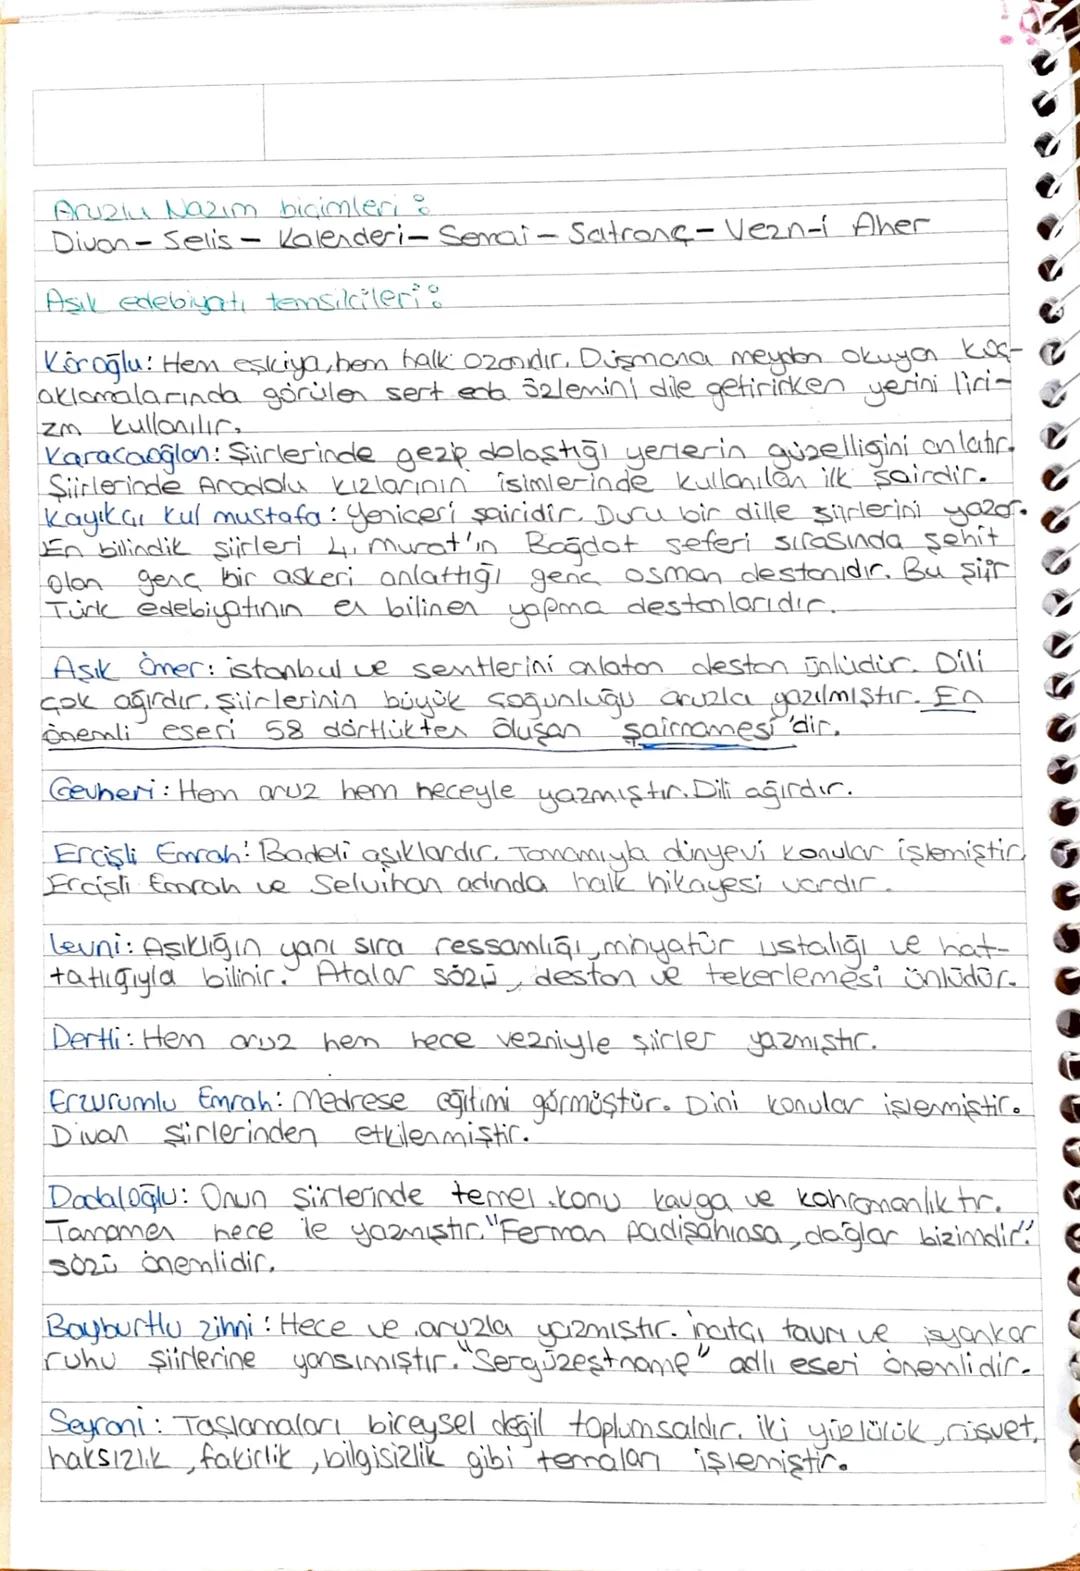 Aruzlu Nazım biçimleri :
Divan - Selis - Kalenderi - Semai - Satranç - Vezn-i Aher
Aşık edebiyatı temsilcileri :
Köroğlu: Hem eşkiya, hem halk ozanıdır. Düşmana meydan okuyan koç-
aklamalarında görülen sert eda özlemini dile getirirken yerini liri-
zm kullanılır.
Karacaoğlan: Şiirlerinde gezip dolaştığı yerlerin güzelliğini anlatır.
Şiirlerinde Anadolu kızlarının isimlerinde kullanılan ilk şairdir.
Kayıkçı Kul mustafa: Yeniçeri şairidir. Duru bir dille şiirlerini yazar.
En bilindik şiirleri 4. Murat'ın Bağdat seferi sırasında şehit
olan genç bir askeri anlattığı genç osman destanıdır. Bu şiir
Türk edebiyatının en bilinen yapma destanlarıdır.
Aşık Ömer: istanbul ve semtlerini anlatan destan ünlüdür. Dili
çok ağırdır. Şiirlerinin büyük çoğunluğu aruzla yazılmıştır. En
önemli eseri 58 dörtlükten oluşan şairnamesi'dir.
Gevheri: Hem aruz hem heceyle yazmıştır. Dili ağırdır.
Ercişli Emrah: Badeli aşıklardır. Tamamıyla dünyevi konular işlemiştir.
Ercişli Emrah ve Selvihan adında halk hikayesi vardır.
Levni: Aşıklığın yanı sıra ressamlığı, minyatür ustalığı ve hat-
tatlığıyla bilinir. Atalar sözü, destan ve tekerlemesi ünlüdür.
Dertli: Hem aruz hem hece vezniyle şiirler yazmıştır.
Erzurumlu Emrah: Medrese eğitimi görmüştür. Dini konular işlenmiştir.
Divan şiirlerinden etkilenmiştir.
Dadaloğlu: Onun şiirlerinde temel konu kavga ve kahramanlıktır.
Tamamen hece ile yazmıştır. "Ferman padişahınsa, dağlar bizimdir."
sözü önemlidir.
Bayburtlu zihni: Hece ve aruzla yazmıştır. inatçı tavrı ve isyankar
ruhu şiirlerine yansımıştır. "Sergüzeştname" adlı eseri önemlidir.
Seyrani: Taşlamaları bireysel değil toplumsaldır. iki yüzlülük, rüşvet,
haksızlık, fakirlik, bilgisizlik gibi temaları işlemiştir.